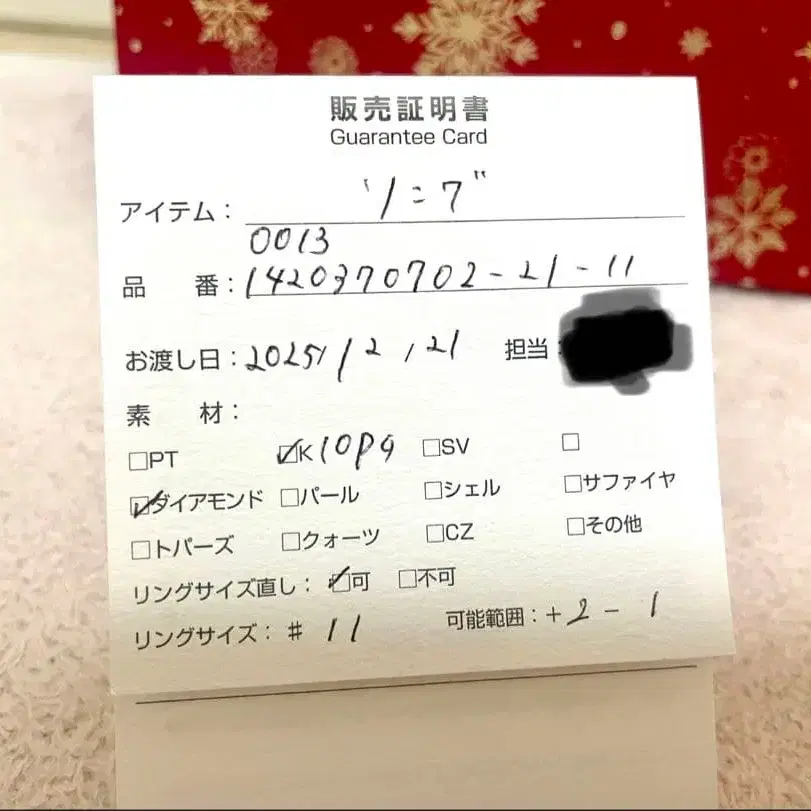 販売証明書
Guarantee Card
アイテム：
0013
品 番：1420370702-21-11
お渡し日：2025/12/21 担当：
素 材：
□PT ☑K10PG □SV □
☑ダイアモンド □パール □シェル □サファイヤ
□トパーズ □クォーツ □CZ □その他
リングサイズ直し：☑可 □不可
リングサイズ：# 11 可能範囲：+2 - 1